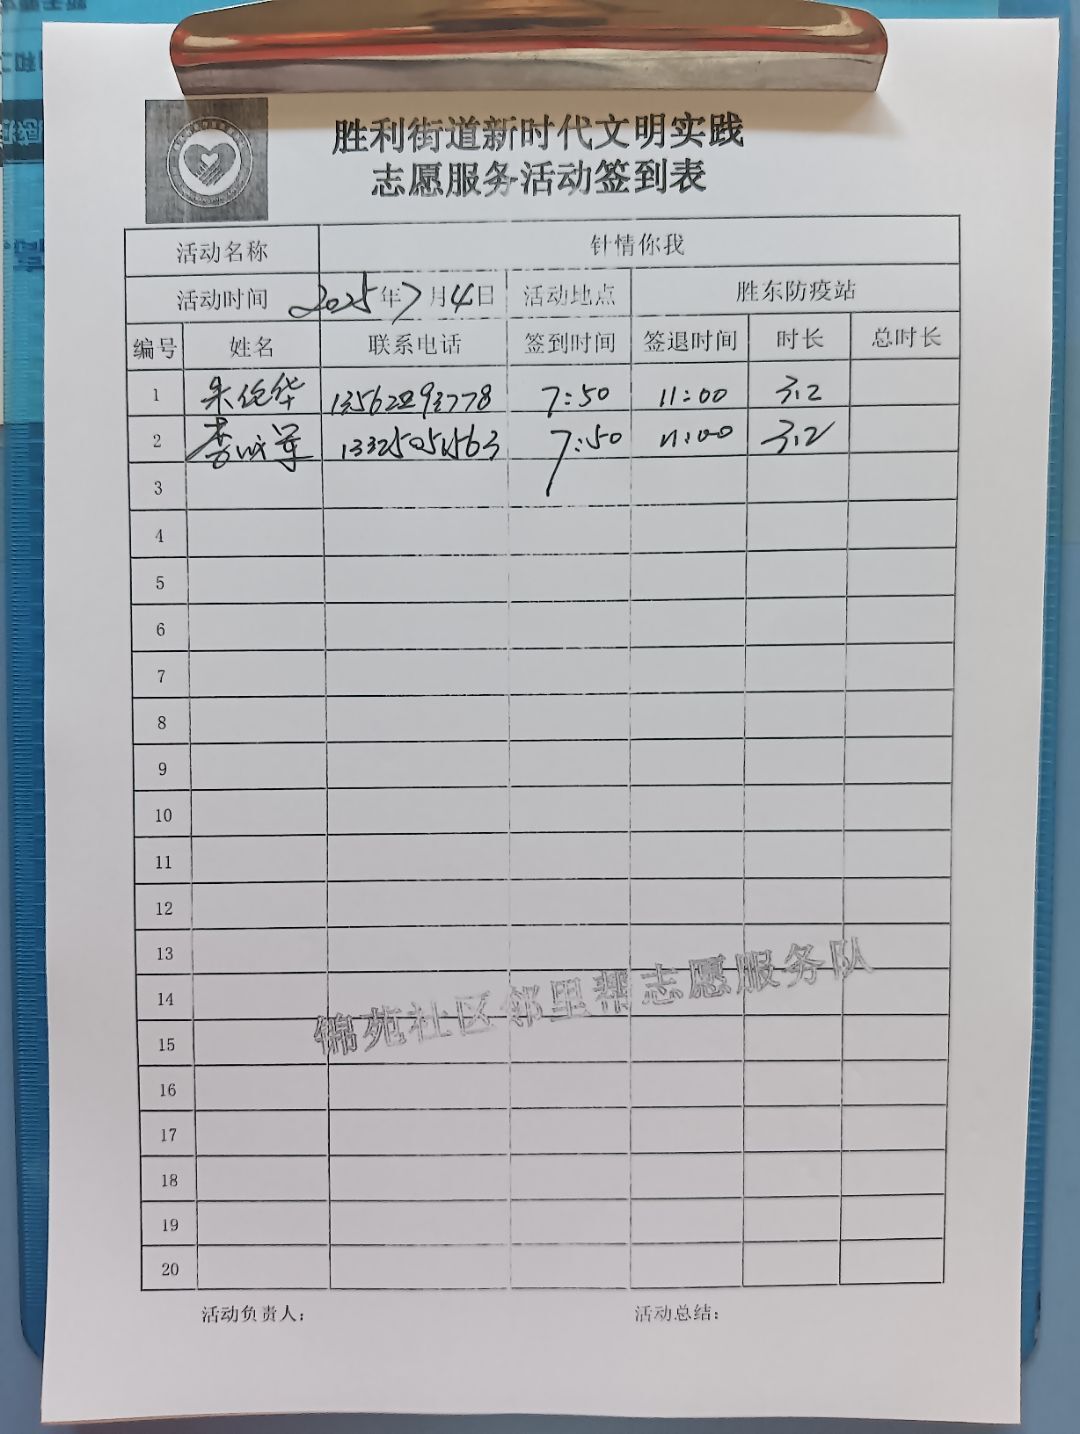 胜利街道新时代文明实践
志愿服务活动签到表
活动名称 针情你我
活动时间 2025年7月4日 活动地点 胜东防疫站
编号 姓名 联系电话 签到时间 签退时间 时长 总时长
1 7:50 11:00 3.2
2 7:50 11:00 3.2
3
4
5
6
7
8
9
10
11
12
13
14
15
16
17
18
19
20
锦苑社区邻里帮志愿服务队
活动负责人： 活动总结：